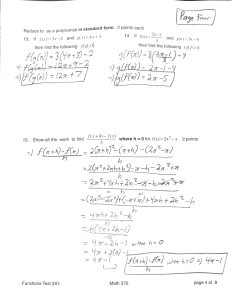 Page Four
Reduce to as a polynomial in standard form. 2 points each
13. If f(x) = 3x − 2 and g(x) = 4x + 3
then find the following f(g(x))
f(g(x)) = 3(4x+3) − 2
⇒ f(g(x)) = 12x + 9 − 2
⇒ f(g(x)) = 12x + 7
then find the following
⇒ g(f(x)) = 2x − 1 − 4
⇒ g(f(x)) = 2x − 5
15. Show all the work to find f(x+h) − f(x) / h where h = 0 for f(x) = 2x² − x. 2 points
⇒ f(x+h) − f(x) / h = 2(x+h)² − (x+h) − (2x² − x) / h
= 2(x² + 2xh + h²) − x − h − 2x² + x / h
= 2x² + 4xh + 2h² − x − h − 2x² + x / h
= (2x² − 2x²) + (−x + x) + 4xh + 2h² − h / h
= 4xh + 2h² − h / h
= h(4x + 2h − 1) / h
= 4x + 2h − 1 when h = 0
= 4x + 2(0) − 1
= 4x − 1
f(x+h) − f(x) / h when h = 0 ⇒ 4x − 1
Functions Test 2A1
Math 370
page 4 of 8